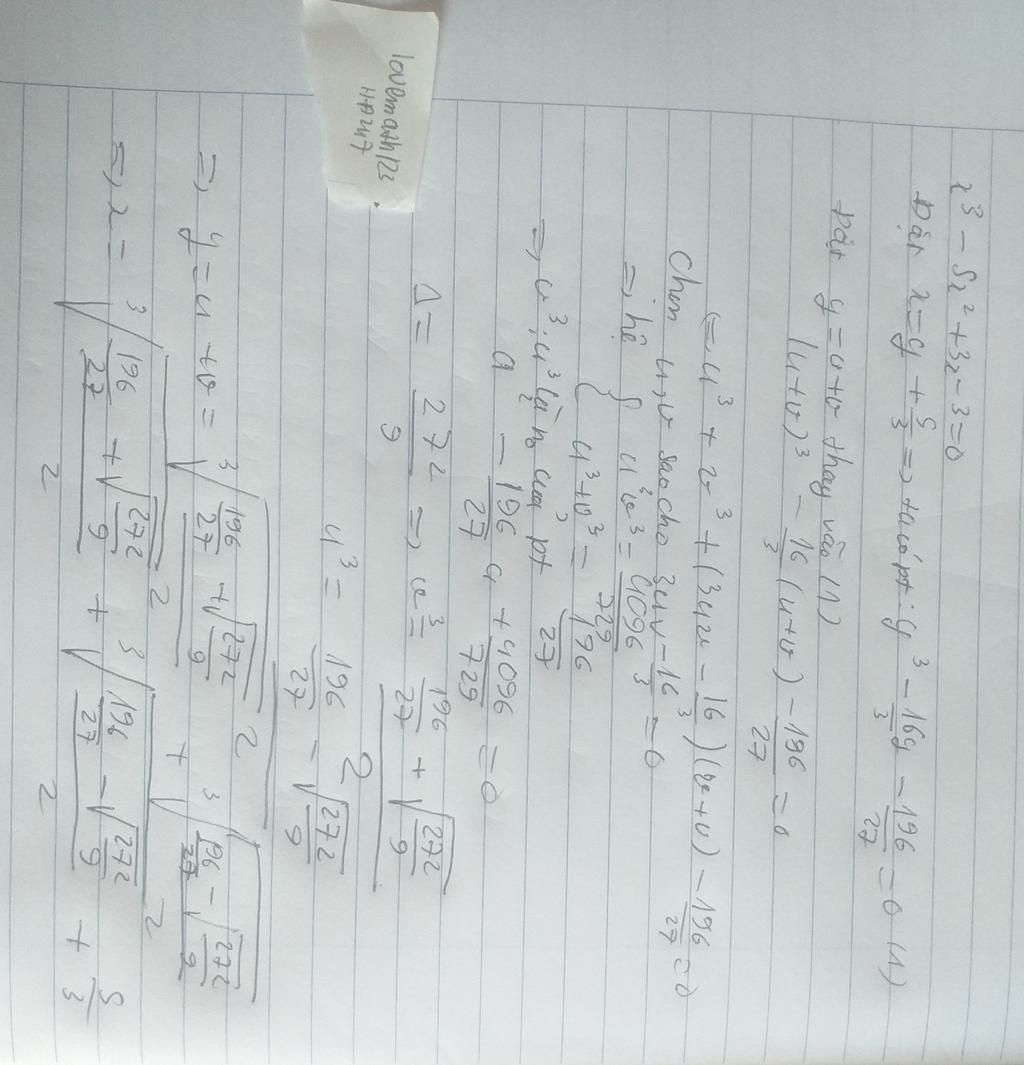 x³ - 5x² + 3x - 3 = 0
Đặt x = y + 5/3 => ta có pt: y³ - 16/3 y - 196/27 = 0 (1)
Đặt y = u+v thay vào (1)
(u+v)³ - 16/3 (u+v) - 196/27 = 0
<=> u³ + v³ + (3uv - 16/3)(u+v) - 196/27 = 0
Chọn u,v sao cho 3uv - 16/3 = 0
=> hệ { u³v³ = 4096/729
u³+v³ = 196/27
=> v³; u³ là n₀ của pt
a² - 196/27 a + 4096/729 = 0
Δ = 272/9 => v³ = (196/27 + √(272/9))/2
u³ = (196/27 - √(272/9))/2
=> y = u + v = ³√((196/27 + √(272/9))/2) + ³√((196/27 - √(272/9))/2)
=> x = ³√((196/27 + √(272/9))/2) + ³√((196/27 - √(272/9))/2) + 5/3
lovemath123